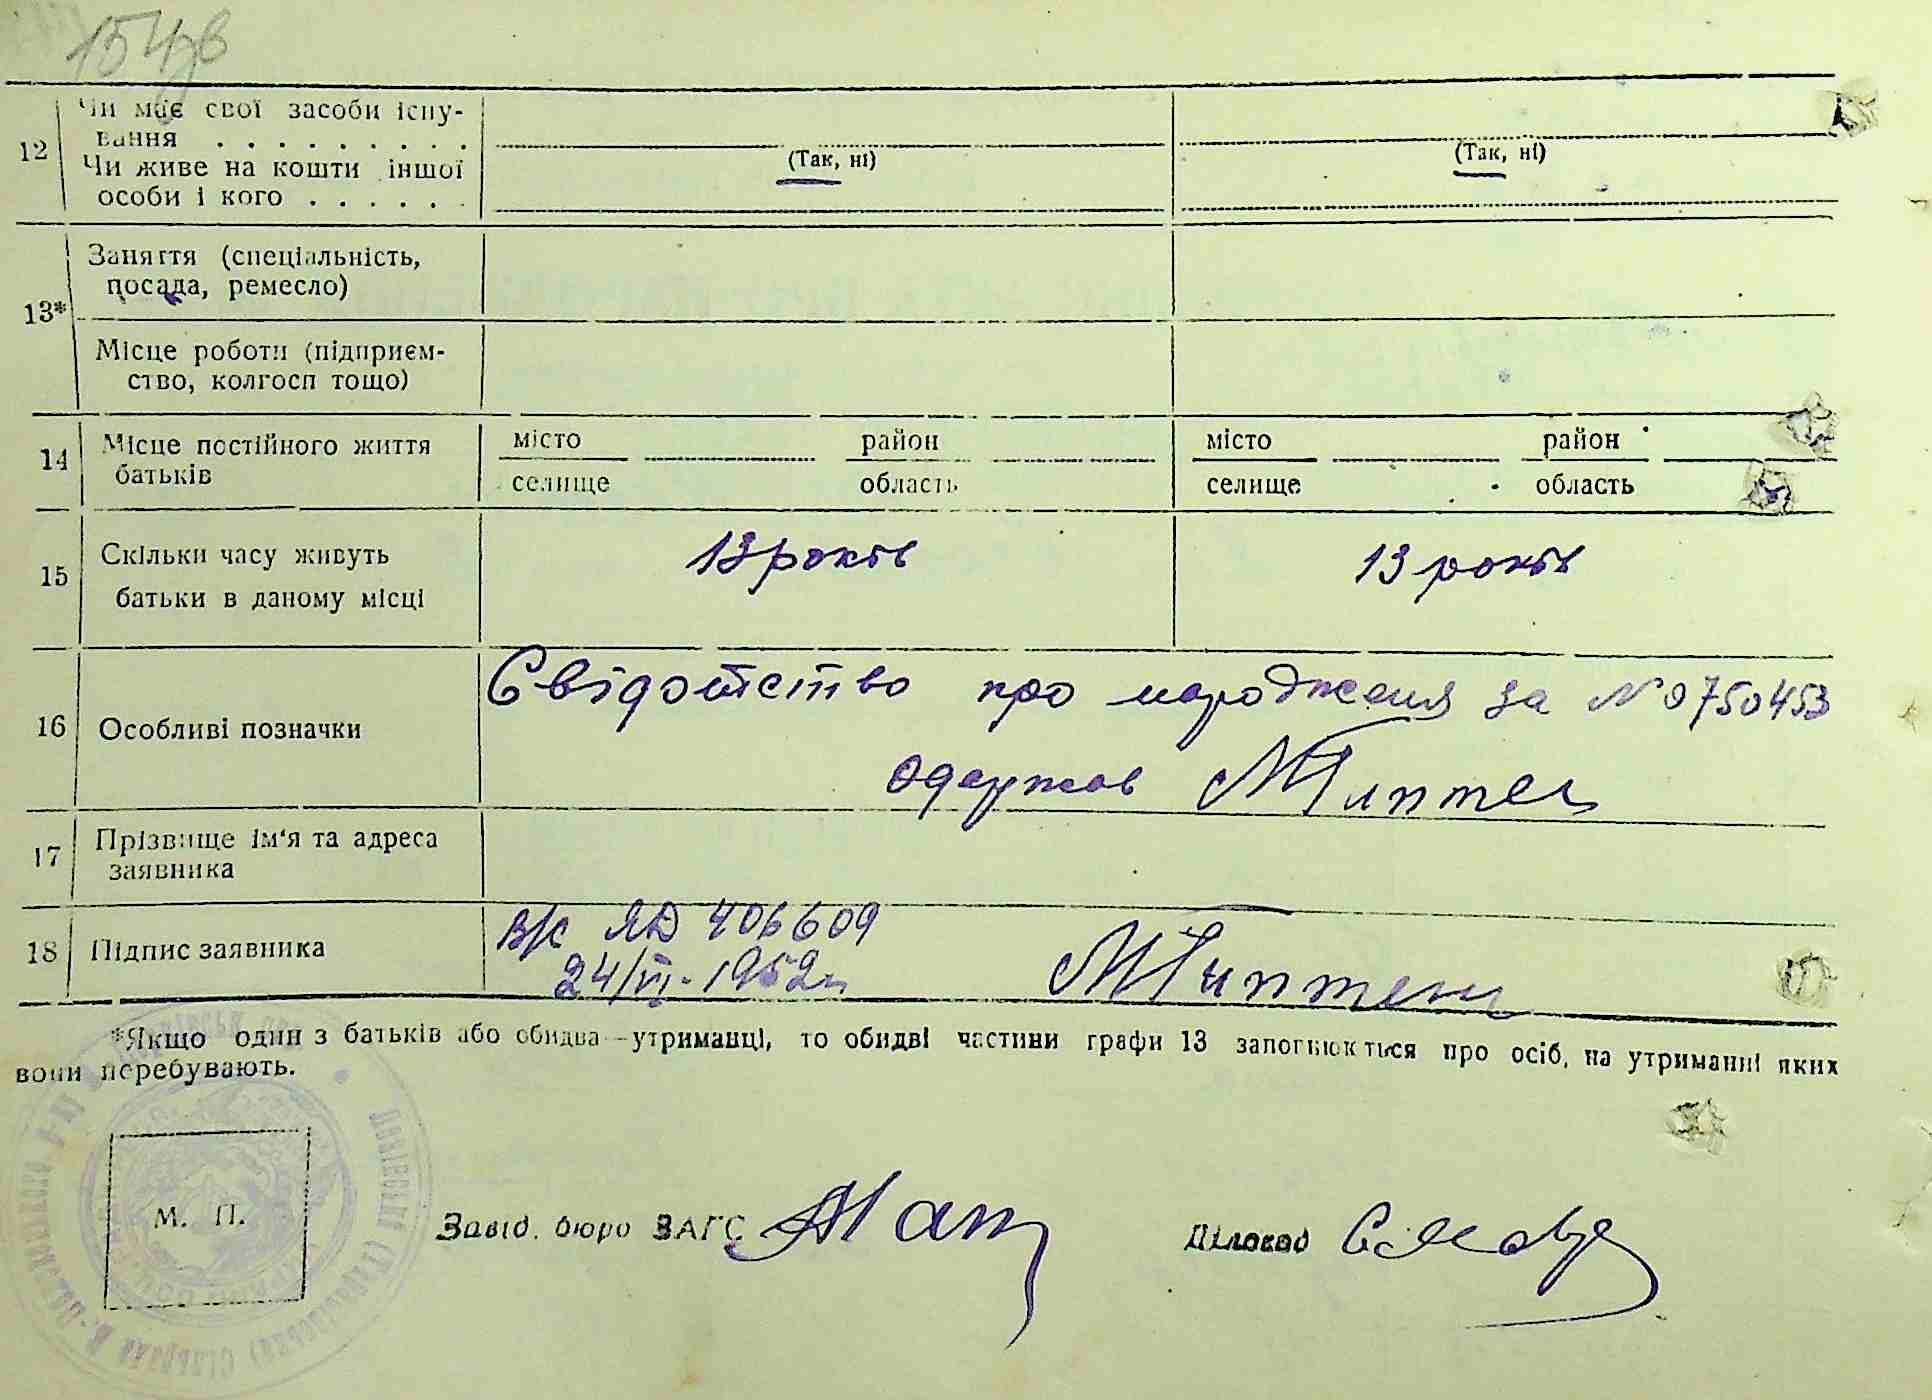 12
Чи має свої засоби існу-
вання . . . . . . . . .
Чи живе на кошти іншої
особи і кого . . . . . .
(Так, ні)
(Так, ні)
13*
Заняття (спеціальність,
посада, ремесло)
Місце роботи (підприєм-
ство, колгосп тощо)
14
Місце постійного життя
батьків
місто район
селище область
місто район
селище область
15
Скільки часу живуть
батьки в даному місці
13 років
13 років
16
Особливі позначки
Свідотство про народження за № 0750453
одержав
17
Прізвище ім'я та адреса
заявника
18
Підпис заявника
В/К ЯД 406609
24/VI-1952
*Якщо один з батьків або обидва—утриманці, то обидві частини графи 13 заповнюються про осіб, на утриманні яких
вони перебувають.
М. П.
Завід. бюро ЗАГС
Діловод